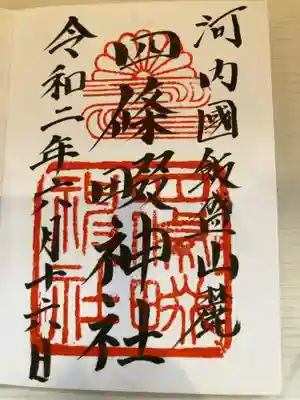 河内國飯盛山麓
四條畷神社
令和二年六月十六日
四條畷神社